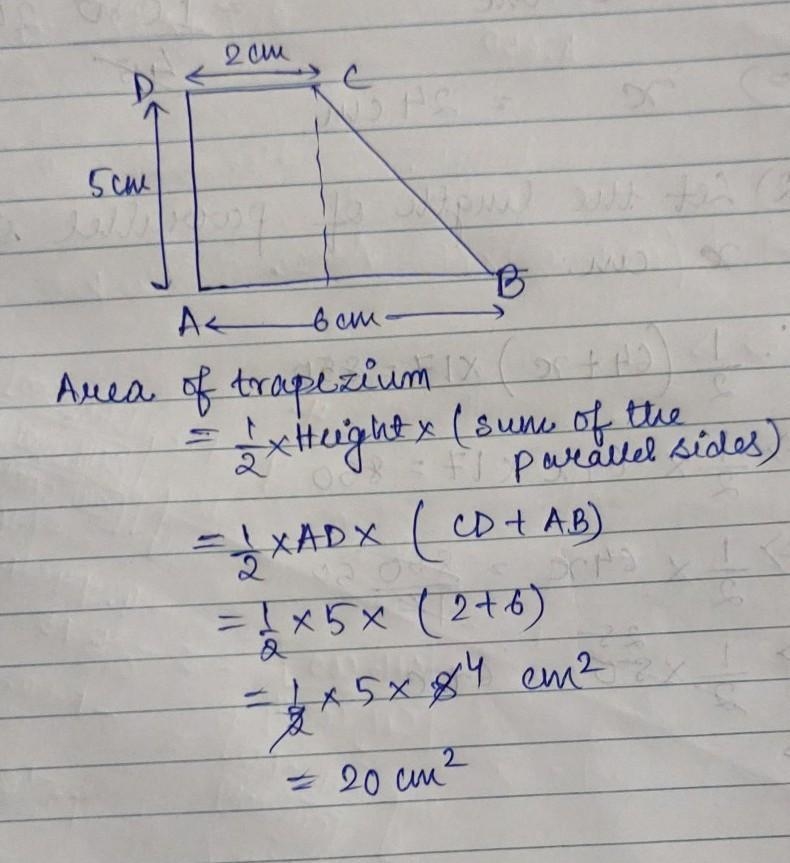 2 cm
D C
5 cm
A 6 cm B
Area of trapezium
= 1/2 × Height × ( sum of the
parallel sides)
= 1/2 × AD × ( CD + AB)
= 1/2 × 5 × ( 2+6)
= 1/2 × 5 × 8 4 cm²
= 20 cm²